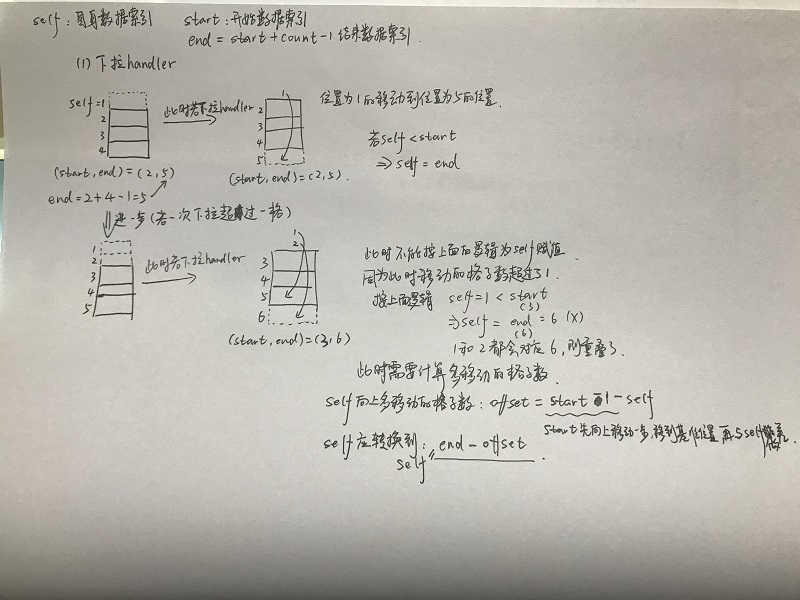 self：自身数据索引 start：开始数据索引
end = start+count-1 结束数据索引.
(1) 下拉handler
self=1
2
3
4
此时若下拉handler
1
2
3
4
5
位置为1的移动到位置为5的位置.
若self<start
⇒self = end
(start,end)=(2,5)
(start,end)=(2,5).
end=2+4-1=5
进一步(若一次下拉超过一格)
1
2
2
3
4
5
此时若下拉handler
1
2
3
4
5
6
(start,end)=(3,6)
此时不能按上面的逻辑为self赋值
因为此时移动的格子数超过了1.
按上面逻辑 self=1 < start
(3)
⇒self = end = 6 (X)
(6)
1和2都会对应6,则重叠了.
此时需要计算多移动的格子数.
self向上多移动的格子数：offset = start - 1 - self
start先向上移动一步,移到基准位置 再与self
self应转换到：end - offset.
self =